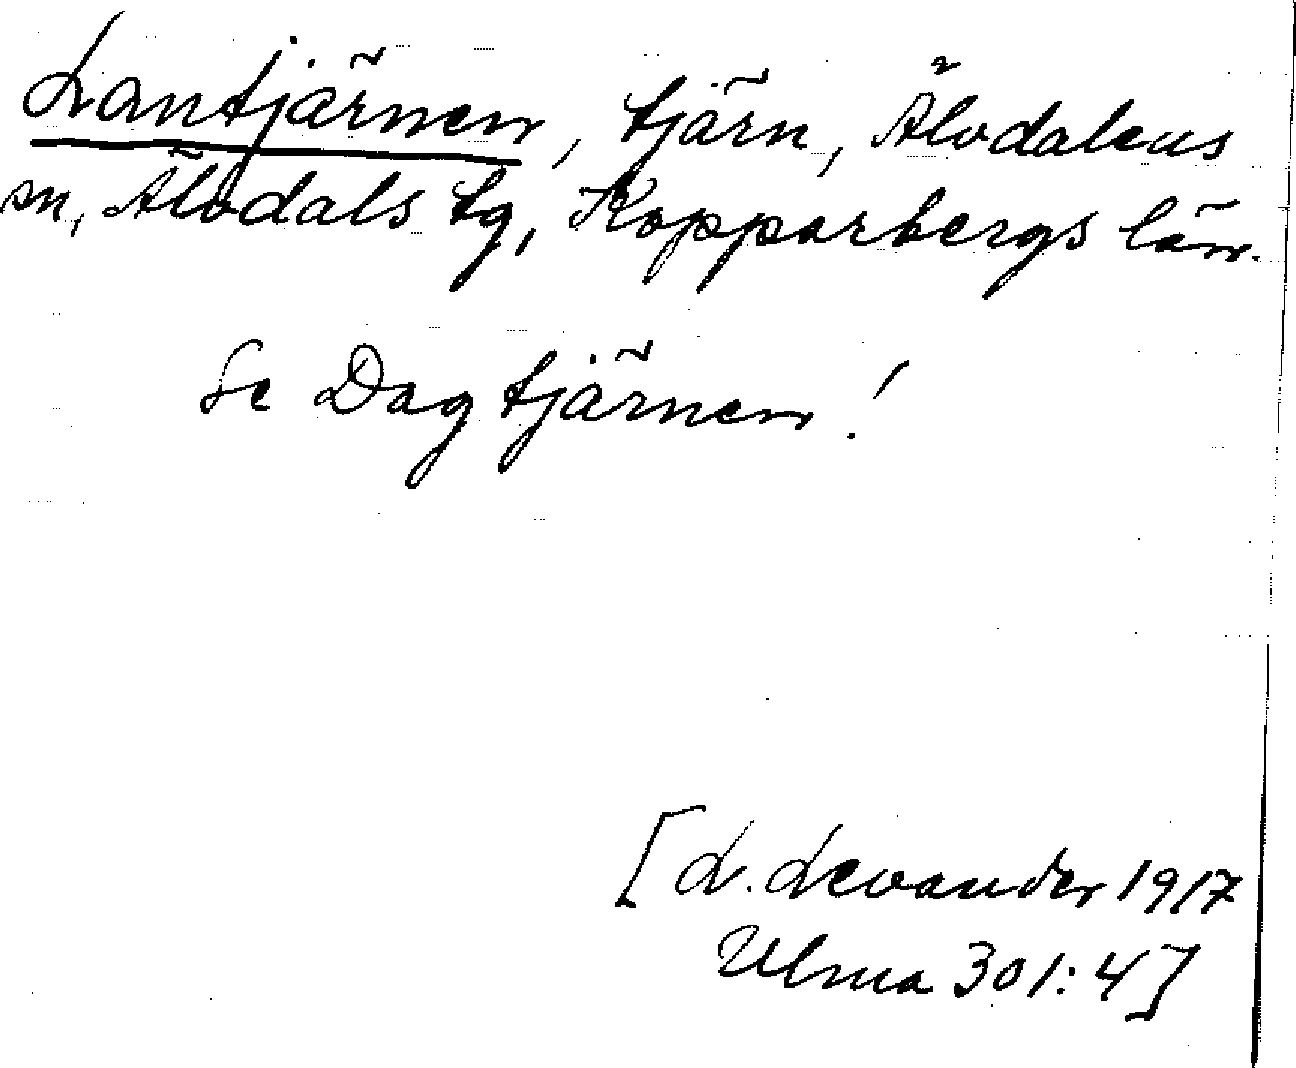 Lantjärnen, tjärn, Älvdalens
sn, Älvdals tg, Kopparbergs län.
Se Dagtjärnen!
[L. Levander 1917
Ulma 301:4]